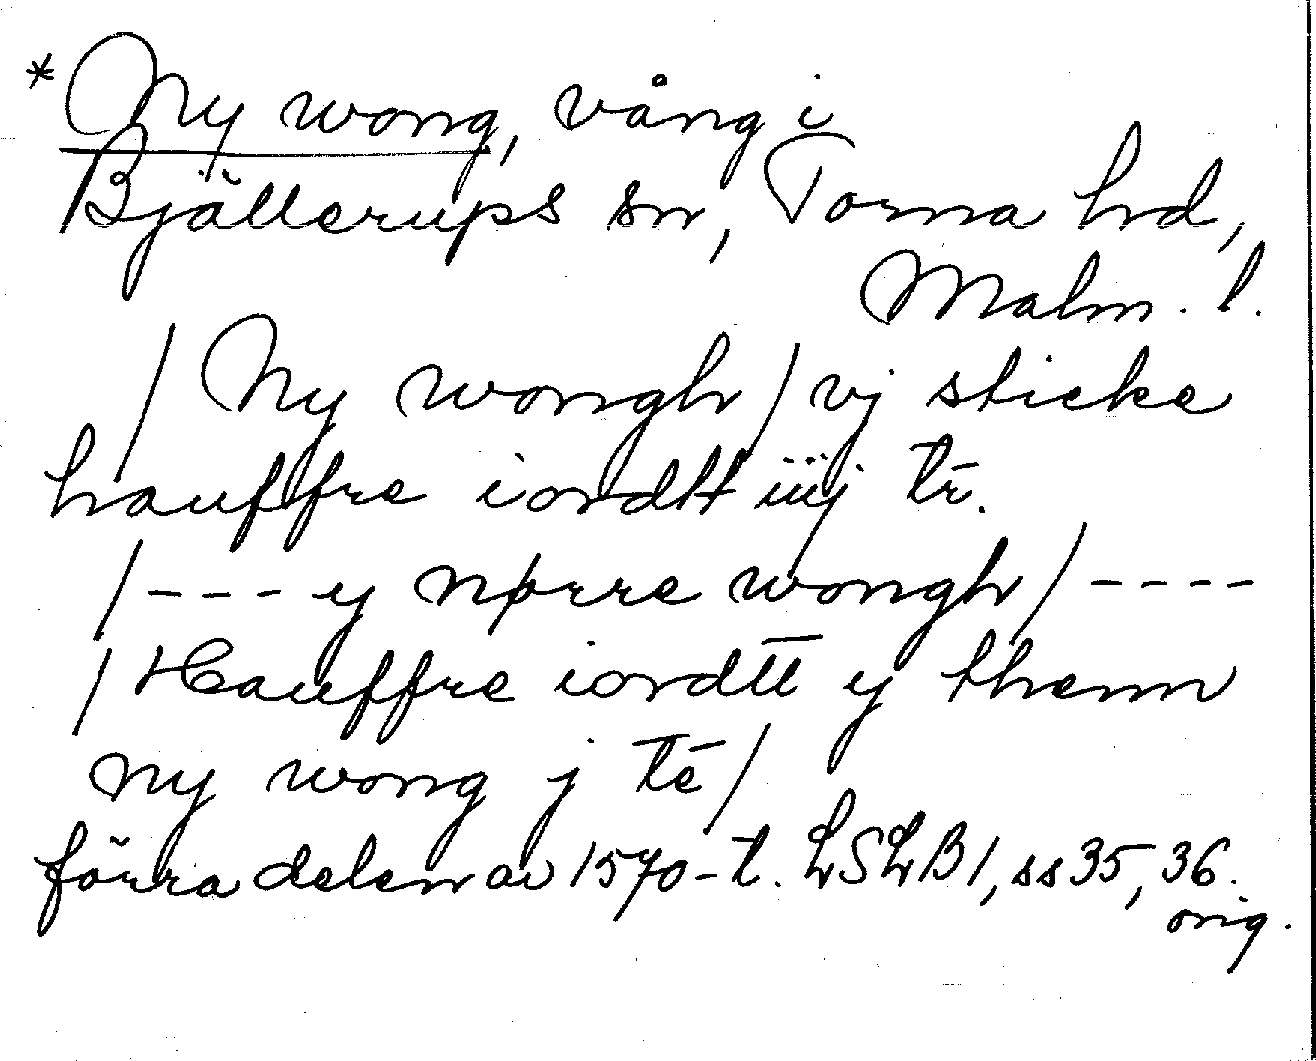 * Ny wong, vång i
Bjällerups sn, Torna hd,
Malm. l.
/ Ny wongh / vj sticke
hauffre iordtt iiij tr̄.
/ - - - - y nørre wongh / - - - -
/ Hauffre iordtt y thenn
ny wong j tē /
förra delen av 1570-t. LSLB 1, ss 35, 36.
orig.